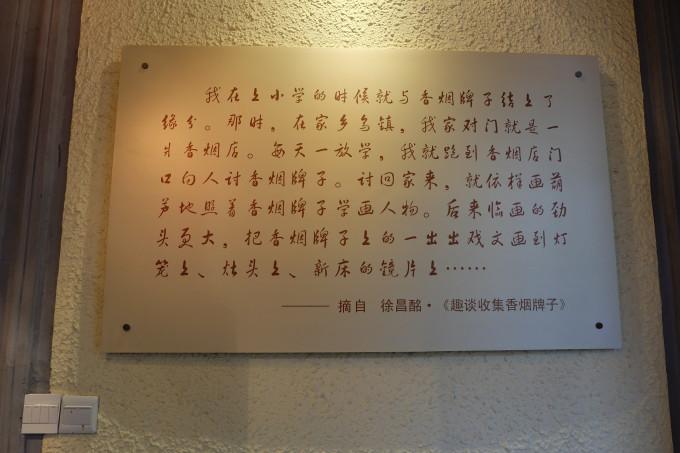 我在上小学的时候就与香烟牌子结上了
缘分。那时，在家乡乌镇，我家对门就是一
爿香烟店。每天一放学，我就跑到香烟店门
口向人讨香烟牌子。讨回家来，就依样画葫
芦地照着香烟牌子学画人物。后来临画的劲
头更大，把香烟牌子上的一出出戏文画到灯
笼上、灶头上、新床的镜片上……
——— 摘自 徐昌酩·《趣谈收集香烟牌子》